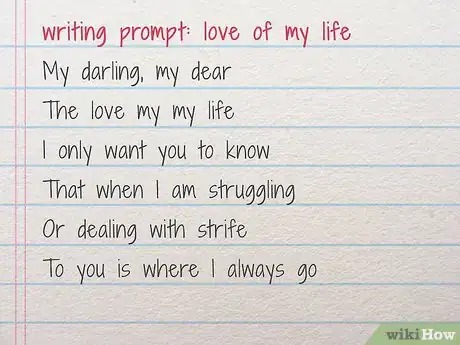 writing prompt: love of my life
My darling, my dear
The love my my life
I only want you to know
That when I am struggling
Or dealing with strife
To you is where I always go
wikiHow